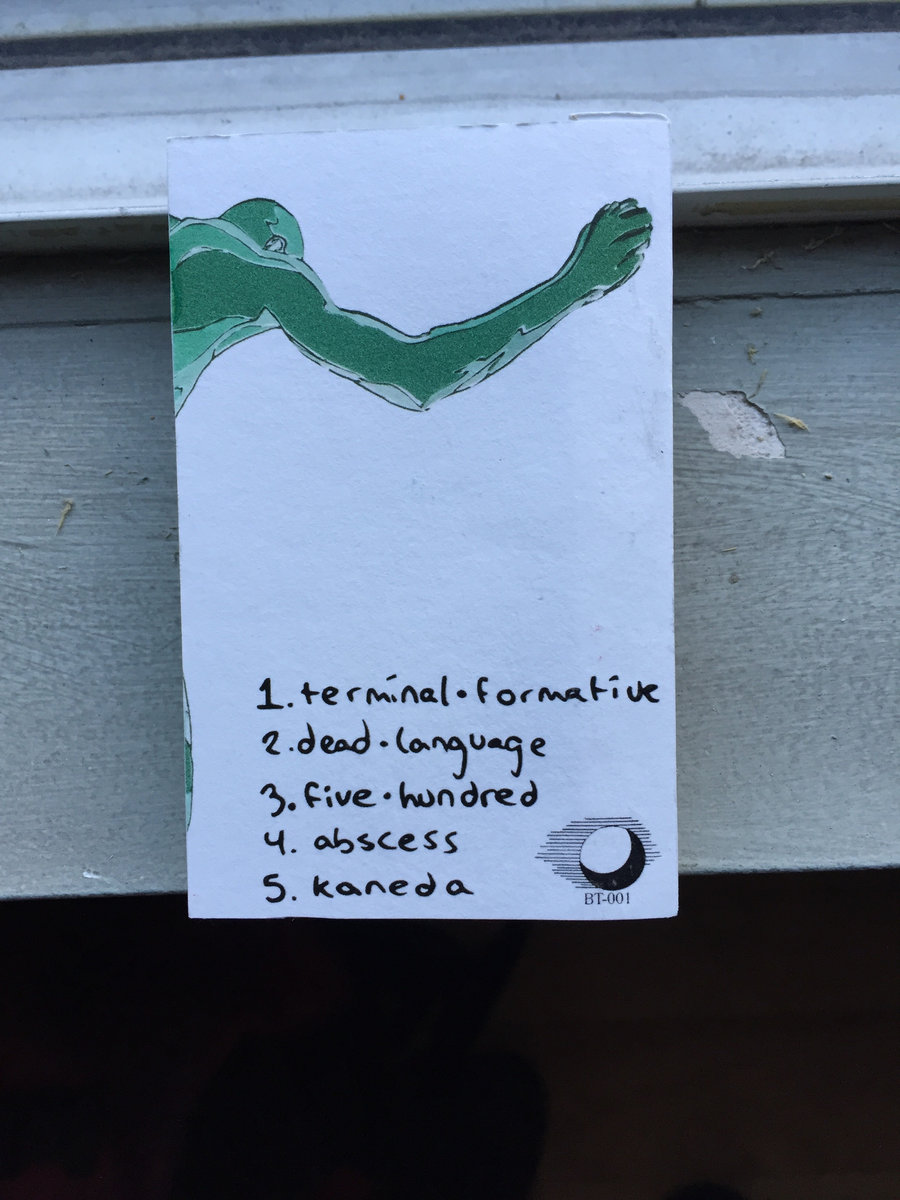 1. terminal·formative
2. dead·language
3. five·hundred
4. abscess
5. kaneda
BT-001